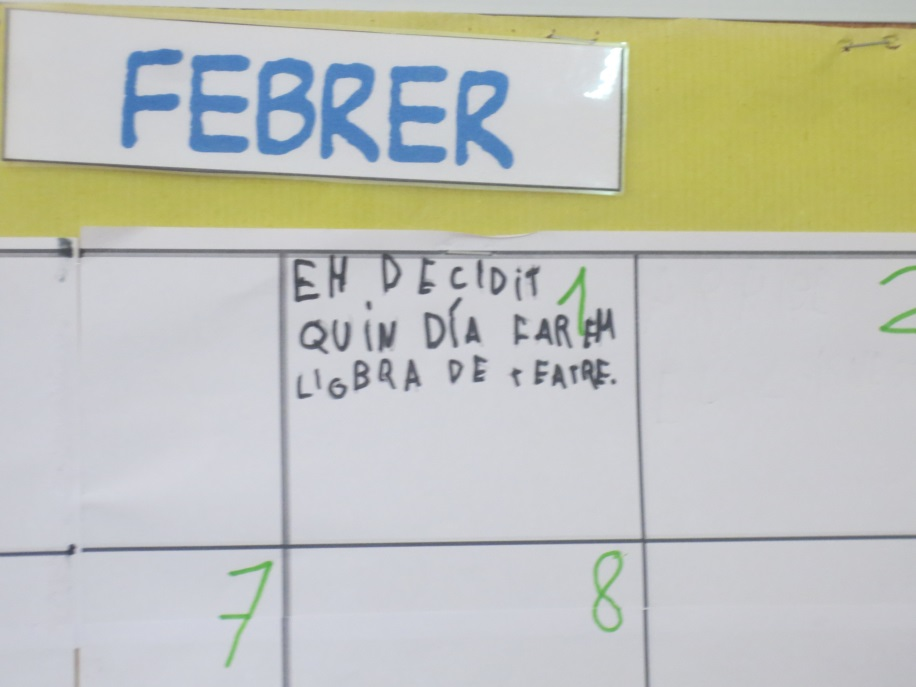 FEBRER
EM DECIDIT 1
QUIN DÍA FAREM
LIGBRA DE TEATRE.
2
7
8